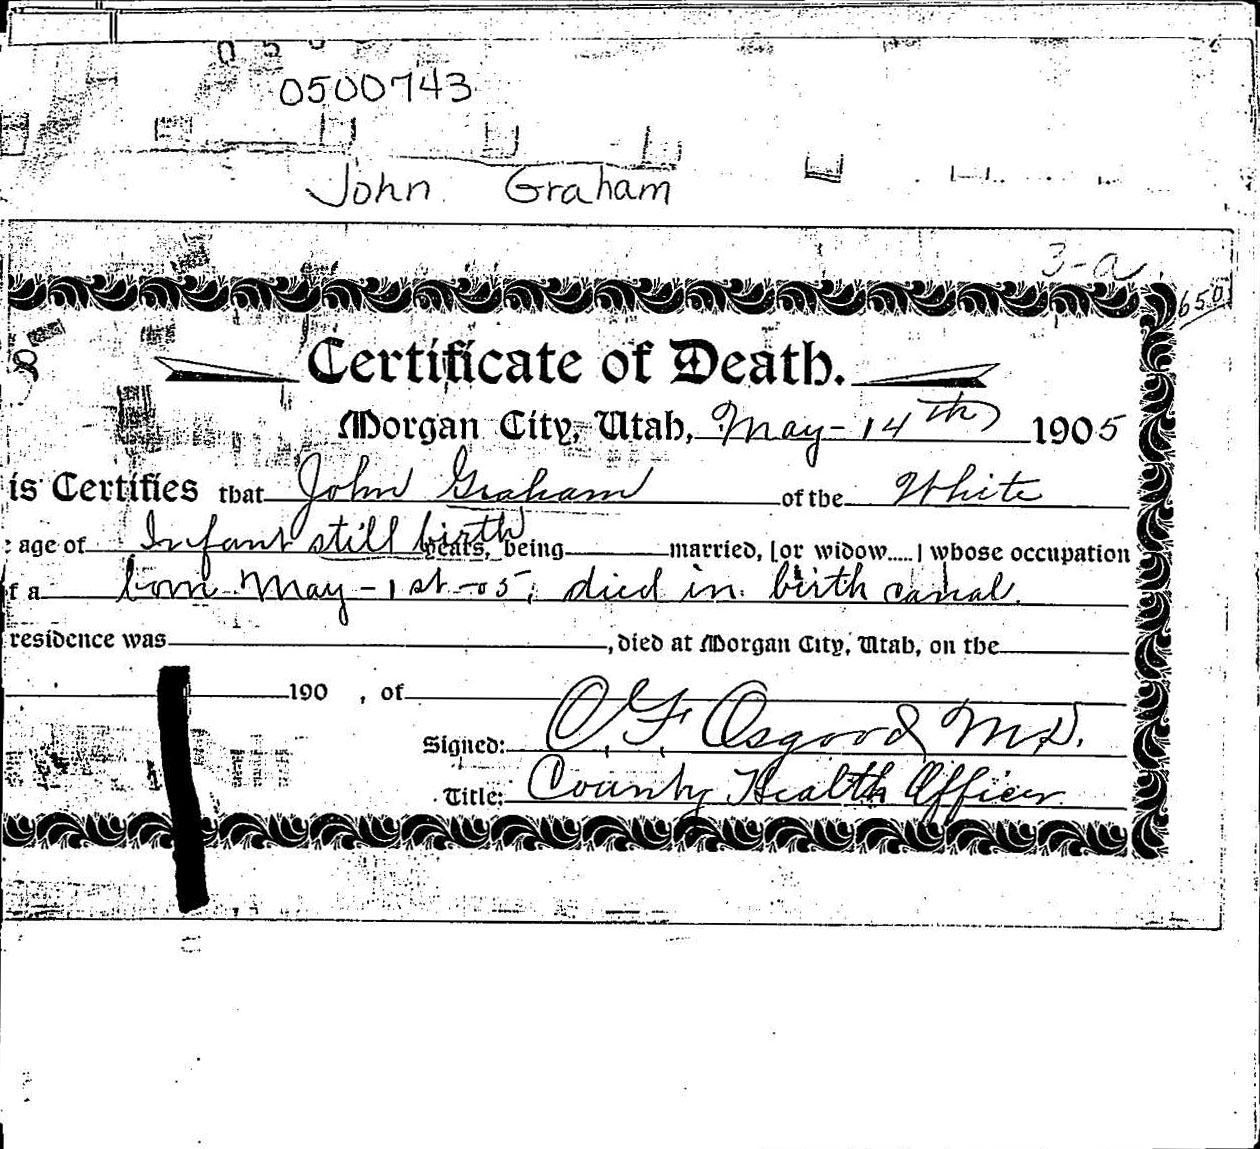 0500743
John Graham
3-a
650
Certificate of Death.
Morgan City, Utah, May-14th 1905
is Certifies that John Graham of the White
age of Infant still birth years, being married, [or widow.....] whose occupation
f a born May-1st-05; died in birth canal.
residence was , died at Morgan City, Utah, on the
190 , of
Signed: O.F. Osgood M.D.
Title: County Health Officer